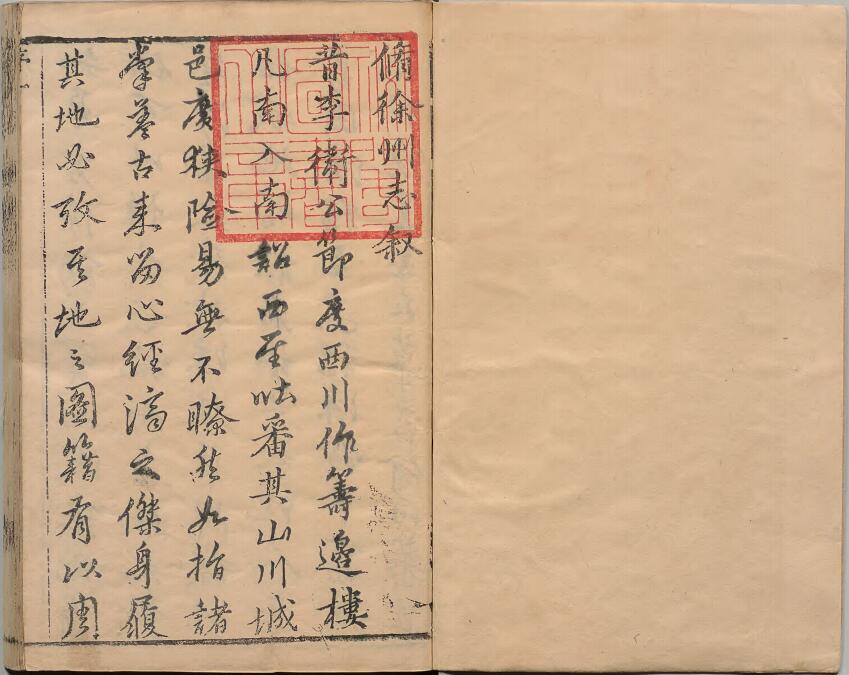 脩徐州志叙
昔李衛公節度西川作籌邊樓
凡南入南詔西至吐番其山川城
邑廣狹險易無不瞭然如指諸
掌蓋古來留心經濟之傑身履
其地必攷其地之圖籍有以周